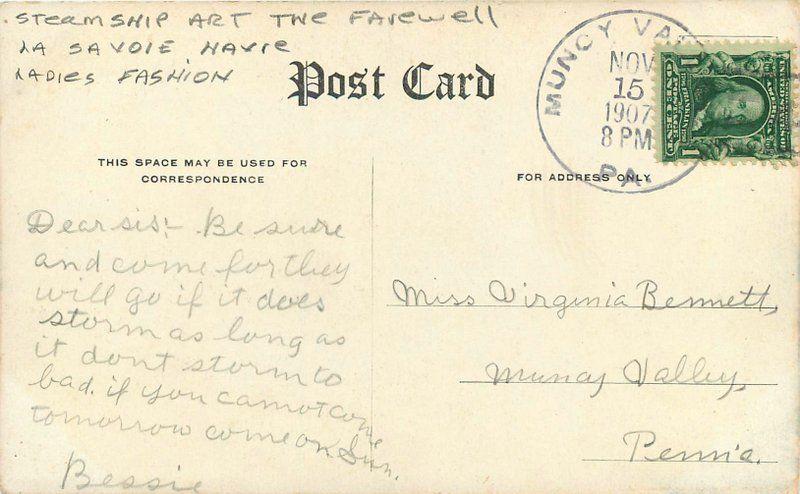 STEAMSHIP ART THE FAREWELL
LA SAVOIE HAVRE
LADIES FASHION
Post Card
MUNCY VA
NOV
15
1907
8 PM
PA.
THIS SPACE MAY BE USED FOR
CORRESPONDENCE
FOR ADDRESS ONLY
Dear sis:- Be sure
and come for they
will go if it does
storm as long as
it dont storm to
bad. if you cannot come
tomorrow come on Sun.
Bessie
Miss Virginia Bennett,
Muncy Valley,
Penn'a.